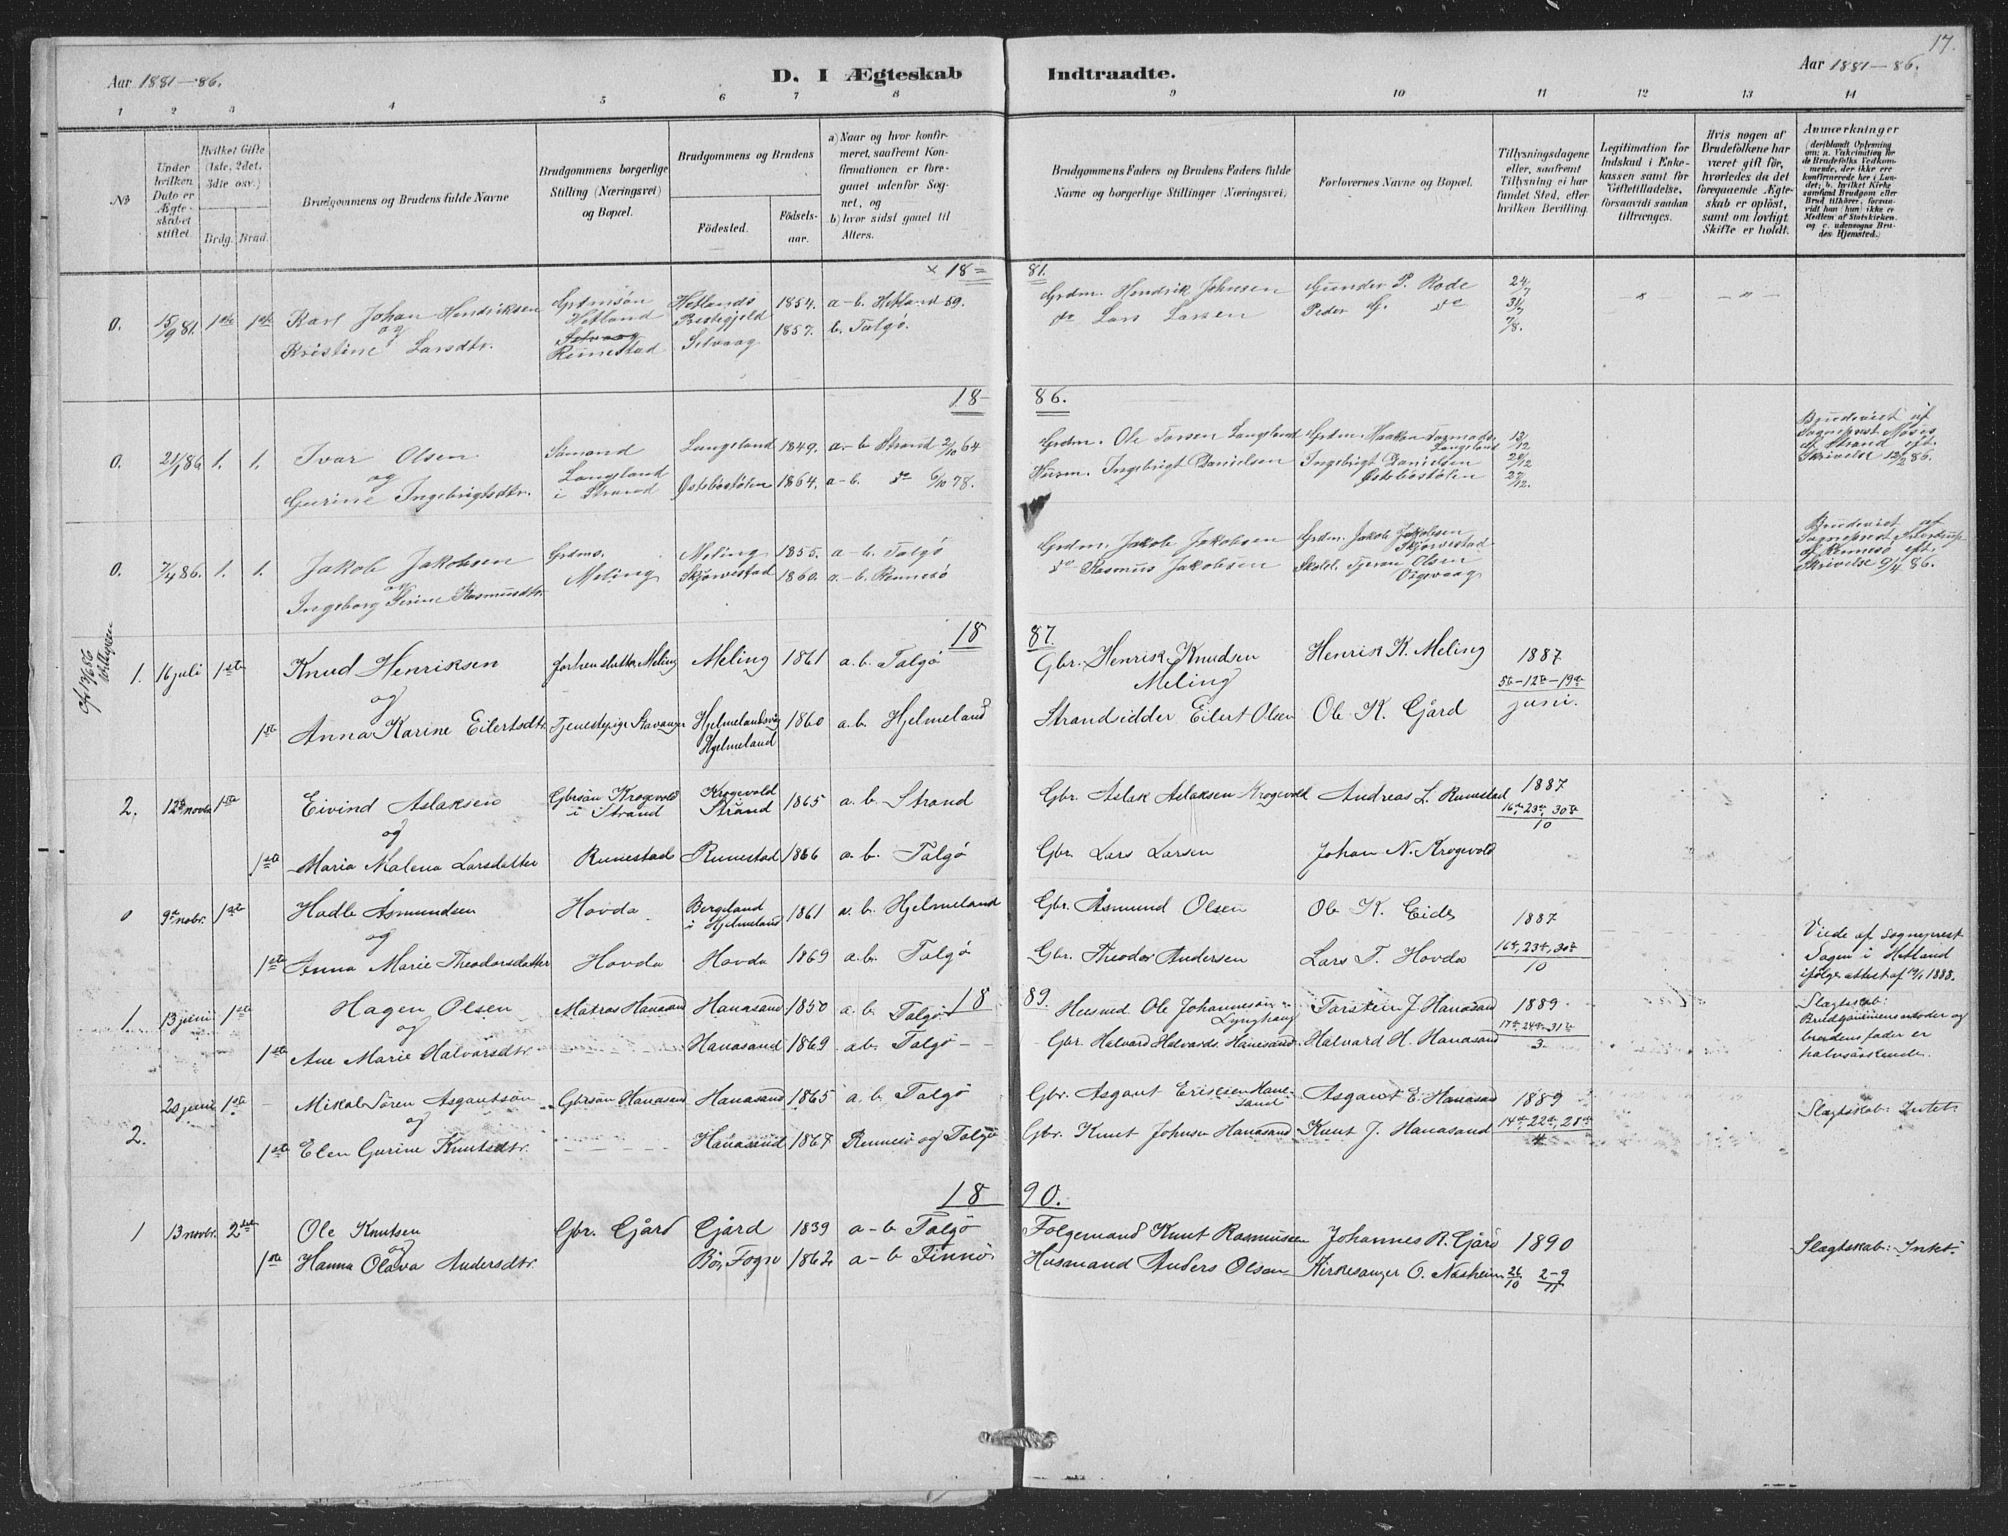 17.
Aar 1881-86.
D. I Ægteskab
Indtraadte.
Aar 1881-86.
1 2 3 4 5 6 7 8 9 10 11 12 13 14
No
Under hvilken Dato er Ægteskabet stiftet.
Hvilket Gifte (1ste, 2det, 3die osv.)
Brdg. Brud.
Brudgommens og Brudens fulde Navne
Brudgommens borgerlige Stilling (Næringsvei) og Bopæl.
Brudgommens og Brudens
Fødested.
Fødselsaar.
a) Naar og hvor konfirmeret, saafremt Konfirmationen er foregaaet udenfor Sognet, og
b) hvor sidst gaaet til Alters.
Brudgommens Faders og Brudens Faders fulde Navne og borgerlige Stillinger (Næringsvei.)
Forlovernes Navne og Bopæl.
Tillysningsdagene eller, saafremt Tillysning ei har fundet Sted, efter hvilken Bevilling.
Legitimation for Indskud i Enkekassen samt for Giftetilladelse, forsaavidt saadan tiltrænges.
Hvis nogen af Brudefolkene har været gift før, hvorledes da det foregaaende Ægteskab er opløst, samt om lovligt Skifte er holdt.
Anmærkninger
(deriblandt Oplysning om: a. Vakcination for de Brudefolks Vedkommende, der ikke ere konfirmerede her i Landet; b. hvilket Kirkesamfund Brudgom eller Brud tilhører, forsaavidt han (hun) ikke er Medlem af Statskirken, og c. udensogns Brudes Hjemsted.)
x 18= 81.
0. 15/9 81. 1ste 1ste Karl Johan Hendriksen Grdmsøn Hetland Hetlands Prestegjeld 1854. a-b. Hetland 59. Grdm. Hendrik Johnsen Gunder P. Rode 24/7
og 31/7
Kristine Larsdtr. Selvaag Rennestad Selvaag 1857. b. Talgø. do Lars Larsen Peder G. do 7/8.
18- 86.
0. 21/1 86. 1. 1. Ivar Olsen Sømand Langeland i Strand Langeland 1849. a.-b. Strand 2/10 64 Grdm. Ole Torsen Langeland Grdm. Haaken Tormods. Langeland 13/12
og 20/12
Gurine Ingebrigtsdtr. Østebøstølen 1864. a-b. do 6/10 78. Husm. Ingebrigt Danielsen Ingebrigt Danielsen Østebøstølen 27/12.
Brudeviet af Sogneprest Moss af Strand eft. Skrivelse 12/2 86.
0. 7/4 86. 1. 1. Jakob Jakobsen Grdms. Meling Meling 1855. a-b. Talgø Grdm. Jakob Jakobsen Grdm. Jakob Jakobsen Skjørvestad
og
Ingeborg Serine Rasmusdtr. Skjørvestad 1860. a.-b. Rennesø do Rasmus Jakobsen Skold. Tjeran Olsen Vigevaag
Brudeviet af Sogneprest af Rennesø eft. Skrivelse 9/4 86.
18 87.
1. 16 juli 1ste Knud Henriksen Meling Meling 1861 a. b. Talgø Gbr. Henrik Knudsen Meling Henrik K. Meling 1887
og 5te-12te-19de
1ste Anna Karine Eilertsdtr. Tjenestepige Stavanger Hjelmelandsvåg Hjelmeland 1860 a. b. Hjelmeland Strandsidder Eilert Olsen Ole K. Gård juni.
2. 12te novbr 1ste Eivind Aslaksen Gbrsøn Krogevold i Strand Krogevold Strand 1865 a. b. Strand Gbr. Aslak Aslaksen Krogevold Andreas L. Runestad 1887
og 16de, 23de, 30te
1ste Maria Malena Larsdatter Runestad Runestad 1866 a. b. Talgø Gbr. Lars Larsen Johan N. Krogevold 10
0 9de novbr. 1ste Hadle Åsmundsen Hovda Bergeland i Hjelmeland 1861 a. b. Hjelmeland Gbr. Åsmund Olsen Ole K. Eide 1887
og 16de, 23de, 30te
1ste Anna Marie Theodorsdatter Hovda Hovda 1869 a. b. Talgø Gbr. Theodor Andersen Lars T. Hovda 10
Viede af Sogneprest i Hetland ifølge attest af 1888.
18 89.
1. 13 juni 1ste Hagen Olsen Matros Hanasand Hanasand 1850 a. b Talgø Husmd Ole Johannesøn Lynghaug Torstein J. Hanasand 1889
og 17de, 24de, 31te
1ste Ane Marie Halvorsdtr. Hanasand 1869 a b. Talgø Gbr. Halvard Halvards. Hanasand Halvard H. Hanasand 3.
Slægtskab: Brudgommens moder og brudens fader er halvsøskende.
2. 20 juni 1ste Mikal Søren Asgautsøn Gbrsøn Hanasand Hanasand 1865 a. b Talgø Gbr. Asgaut Eriksen Hanesand Asgaut E. Hanasand 1889
og 14de, 22de, 28de
1ste Elen Gurine Knutsdtr. Hanasand 1867 Rennesø og Talgø Gbr. Knut Johnsen Hanasand Knut J. Hanasand 4
Slægtskab: Intet.
18 90.
1 13 novbr. 2det Ole Knutsen Gbr. Gård Gård 1839 a-b Talgø Følgemand Knut Rasmussen Johannes R. Gård 1890
og
1ste Hanna Olava Andersdtr. Bø, Fogn 1862 a-b Finnø. Husmand Anders Olsen Kirkesanger O. Nesheim 26/10 2-9/11
Slægtskab: Intet.